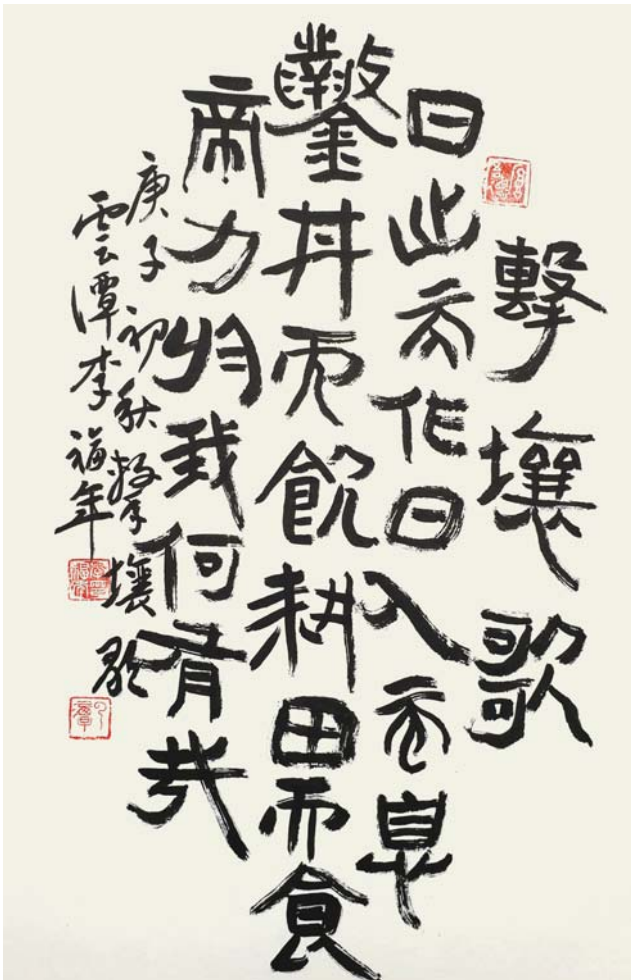 擊壤歌
日出而作日入而息
鑿井而飲耕田而食
帝力於我何有哉
庚子初秋擊壤歌
雲潭李福年